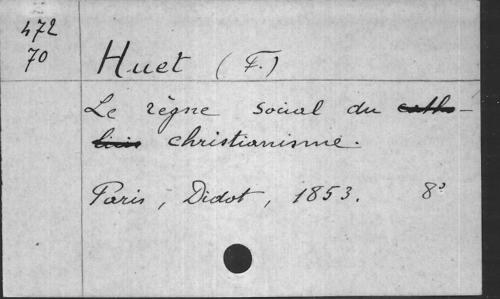 472
70
Huet (F.)
Le règne social du catho-
licis christianisme.
Paris, Didot, 1853. 8°